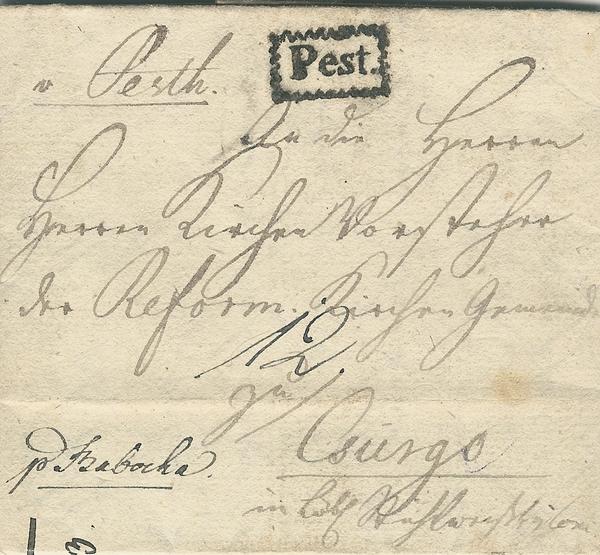 v Pesth.
Pest.
An die Herren
Herren Kirchen Vorsteher
der Reform. Kirchen Gemeinde
12
zu
Csurgo
p Babocha.
in Löbl